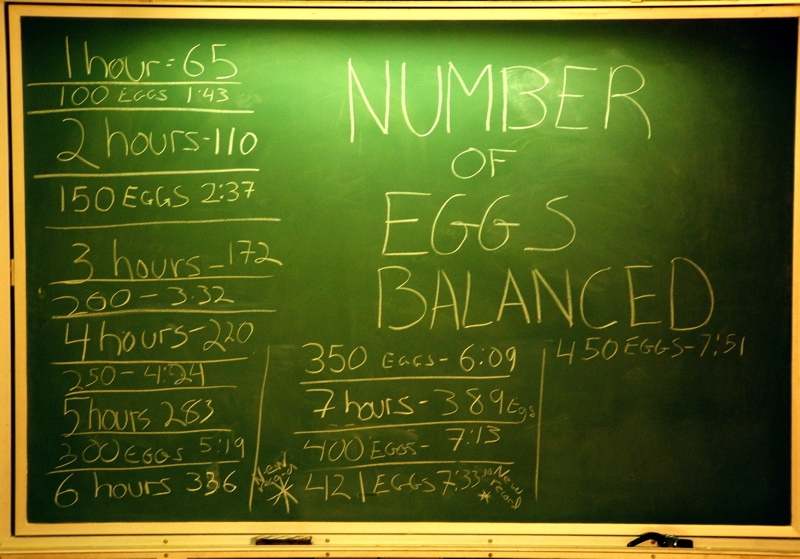 1 hour = 65
100 EGGS 1:43
2 hours - 110
150 EGGS 2:37
3 hours - 172
200 - 3:32
4 hours - 220
250 - 4:24
5 hours 283
300 EGGS 5:19
6 hours 336
NUMBER
OF
EGGS
BALANCED
350 EGGS - 6:09
7 hours - 389 Egs
400 EGGS - 7:13
New
421 EGGS 7:33 New record
450 EGGS - 7:51